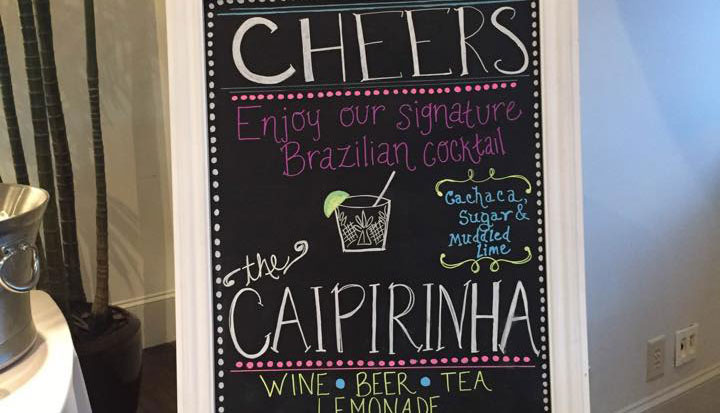 CHEERS
Enjoy our signature
Brazilian cocktail
Cachaca,
Sugar &
Muddled
Lime
the
CAIPIRINHA
WINE • BEER • TEA
LEMONADE